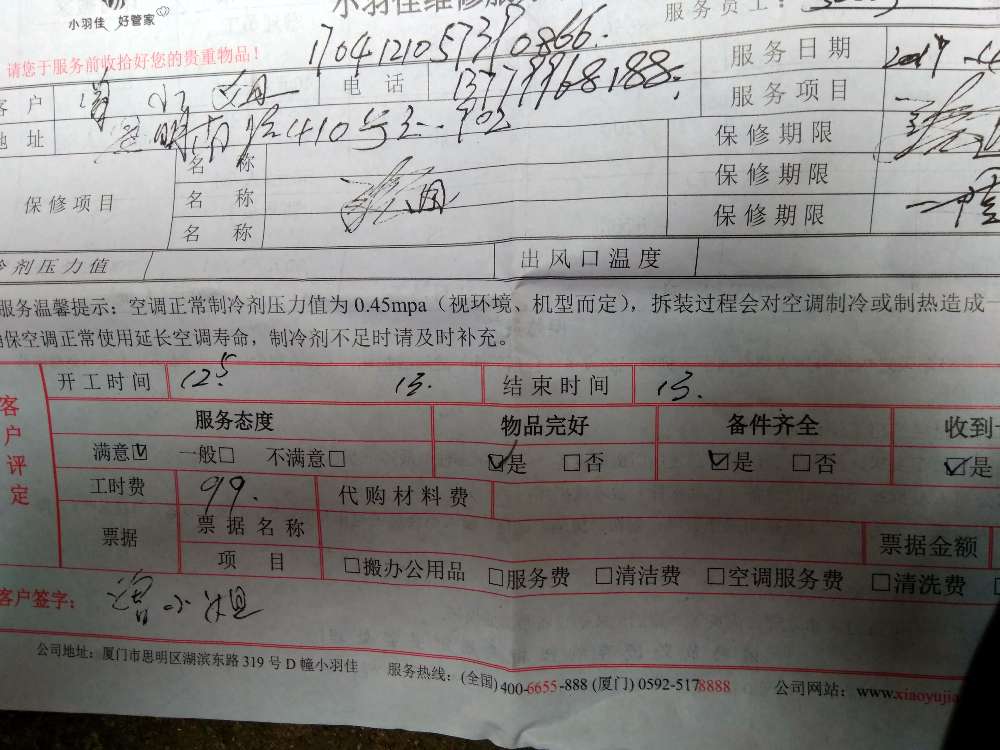 小羽佳 好管家
小羽佳维修服
服务员工：
请您于服务前收拾好您的贵重物品！
17041210573
客户 曾小姐 电话 服务日期 2017
地址 410号 902 服务项目
保修项目 名称 保修期限
名称 保修期限
名称 保修期限
冷剂压力值 出风口温度
服务温馨提示：空调正常制冷剂压力值为 0.45mpa（视环境、机型而定），拆装过程会对空调制冷或制热造成一
确保空调正常使用延长空调寿命，制冷剂不足时请及时补充。
客户评定
开工时间 12 13. 结束时间 13.
服务态度 物品完好 备件齐全 收到
满意☑ 一般□ 不满意□ ☑是 □否 ☑是 □否 ☑是
工时费 99. 代购材料费
票据 票据名称 票据金额
项目 □搬办公用品 □服务费 □清洁费 □空调服务费 □清洗费
客户签字： 曾小姐
公司地址：厦门市思明区湖滨东路 319 号 D 幢小羽佳 服务热线：(全国) 400-6655-888 (厦门) 0592-5178888 公司网站：www.xiaoyujia